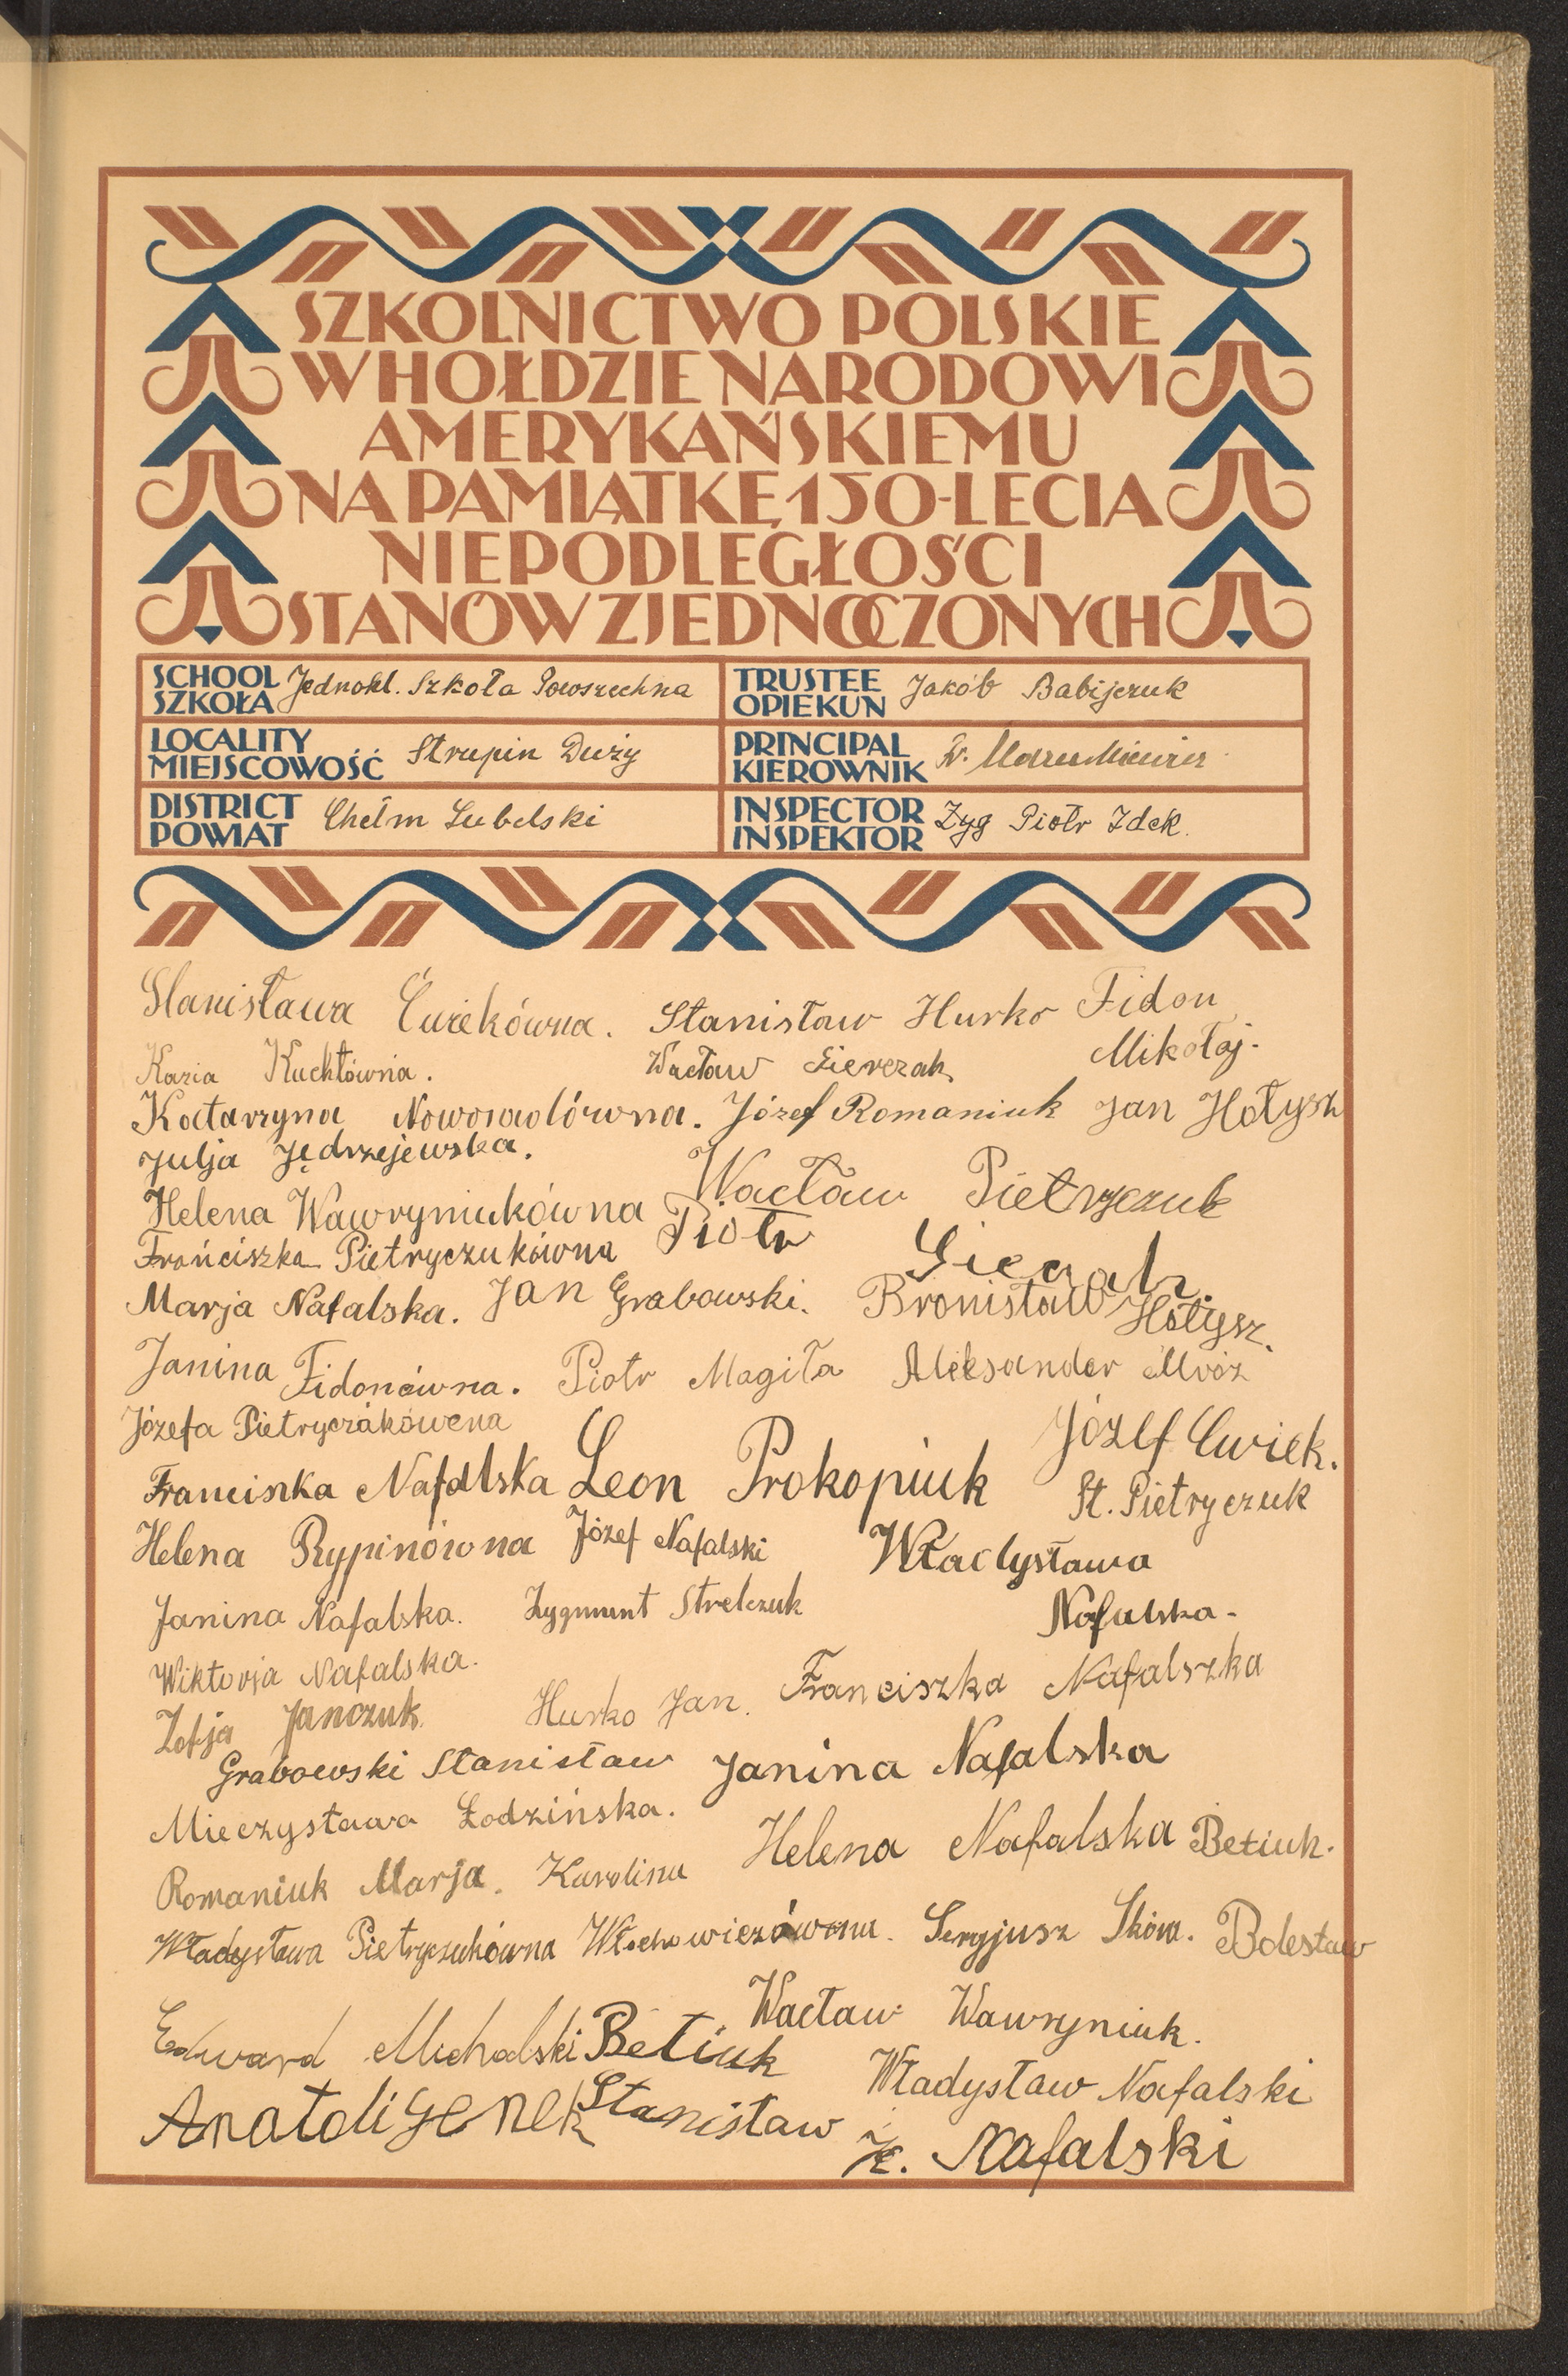 SZKOLNICTWO POLSKIE
W HOŁDZIE NARODOWI
AMERYKAŃSKIEMU
NA PAMIĄTKĘ 150-LECIA
NIEPODLEGŁOŚCI
STANÓW ZJEDNOCZONYCH
SCHOOL SZKOŁA Jednokl. Szkoła Powszechna
TRUSTEE OPIEKUN Jakób Babijczuk
LOCALITY MIEJSCOWOŚĆ Strupin Duży
PRINCIPAL KIEROWNIK
DISTRICT POWIAT Chełm Lubelski
INSPECTOR INSPEKTOR Zyg Piotr Idek.
Stanisława Ćwiekówna. Stanisław Hurko Fidon
Mikołaj.
Kazia Kuchtówna. Wacław
Katarzyna Nowosadówna. Józef Romaniuk Jan Hołysz
Julja Jędrzejewska.
Wacław Pietryczuk
Helena Wawryniukówna Piotr
Frańciszka Pietryczukówna
Marja Nafalska. Jan Grabowski. Bronisław Hołysz.
Janina Fidonówna. Piotr Magiła Aleksander Mróz
Józefa Pietryczakówena Józef Ćwiek.
Franciszka Nafalska Leon Prokopiuk St. Pietryczuk
Helena Rypinówna Józef Nafalski Władysława
Janina Nafalska. Zygmunt Strelczuk Nafalska-
Wiktorja Nafalska. Franciszka Nafalszka
Zofja Janczuk. Hurko Jan.
Grabowski Stanisław Janina Nafalska
Mieczysława Łodzińska. Helena Nafalska Betiuk.
Romaniuk Marja. Karolina
Władysława Pietryczukówna Włochowiczówna. Sergjusz Bolesław
Wacław Wawryniuk.
Edward Michalski Betiuk Władysław Nafalski
Anatoli Stanisław
Nafalski